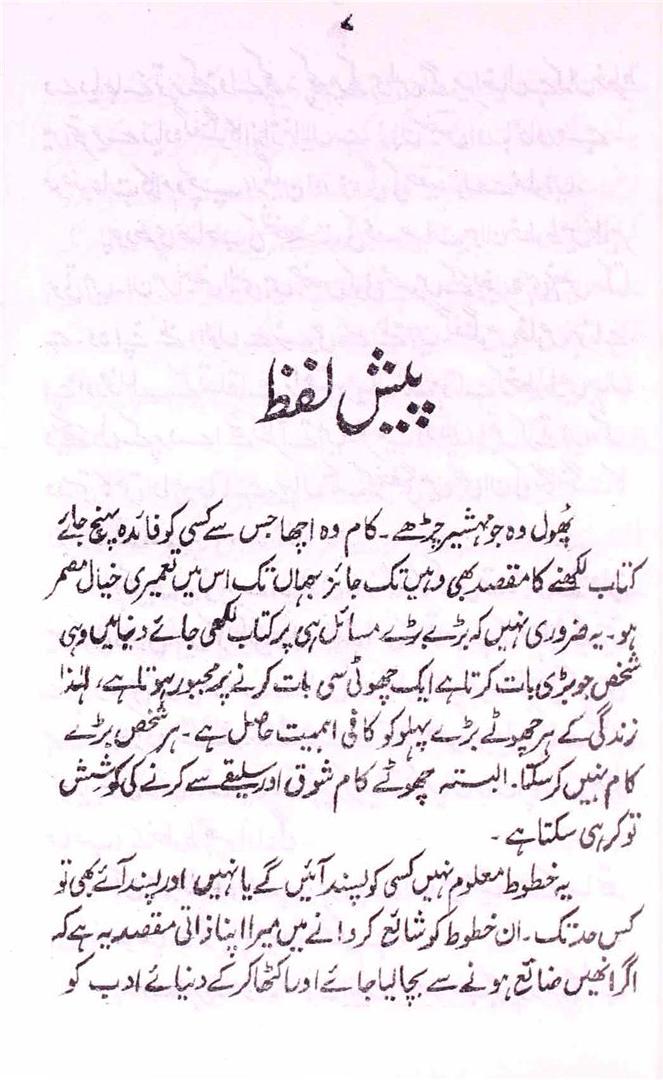 ۷
پیش لفظ
پھول وہ جو مہشیر چڑھے۔ کام وہ اچھا جس سے کسی کو فائدہ پہنچ جائے
کتاب لکھنے کا مقصد بھی وہیں تک جائز جہاں تک اس میں تعمیری خیال مضمر
ہو۔ یہ ضروری نہیں کہ بڑے بڑے مسائل ہی پر کتاب لکھی جائے دنیا میں وہی
شخص جو بڑی بات کرتا ہے ایک چھوٹی سی بات کرنے پر مجبور ہوتا ہے، لہٰذا
زندگی کے ہر چھوٹے بڑے پہلو کو کافی اہمیت حاصل ہے۔ ہر شخص بڑے
کام نہیں کر سکتا۔ البتہ چھوٹے کام شوق اور سلیقے سے کرنے کی کوشش
تو کر ہی سکتا ہے۔
یہ خطوط معلوم نہیں کسی کو پسند آئیں گے یا نہیں اور پسند آئے بھی تو
کس حد تک۔ ان خطوط کو شائع کروانے میں میرا اپنا ذاتی مقصد یہ ہے کہ
اگر انھیں ضائع ہونے سے بچا لیا جائے اور اکٹھا کر کے دنیائے ادب کو